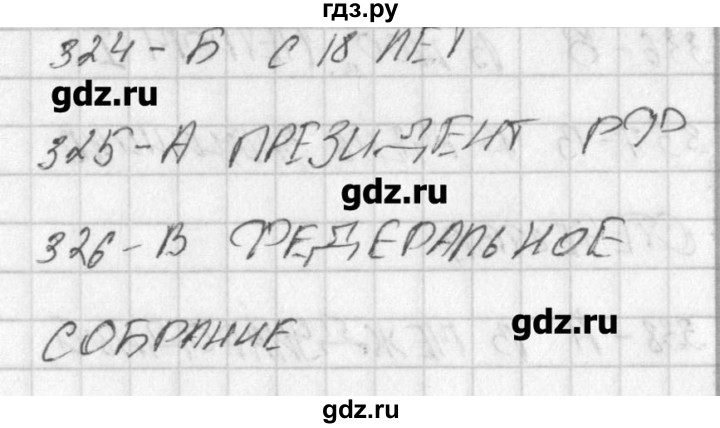 гдз.ру
324-Б С 18 ЛЕТ
gdz.ru
325-А ПРЕЗИДЕНТ РФ
gdz.ru
326-В ФЕДЕРАЛЬНОЕ
СОБРАНИЕ
gdz.ru
gdz.ru